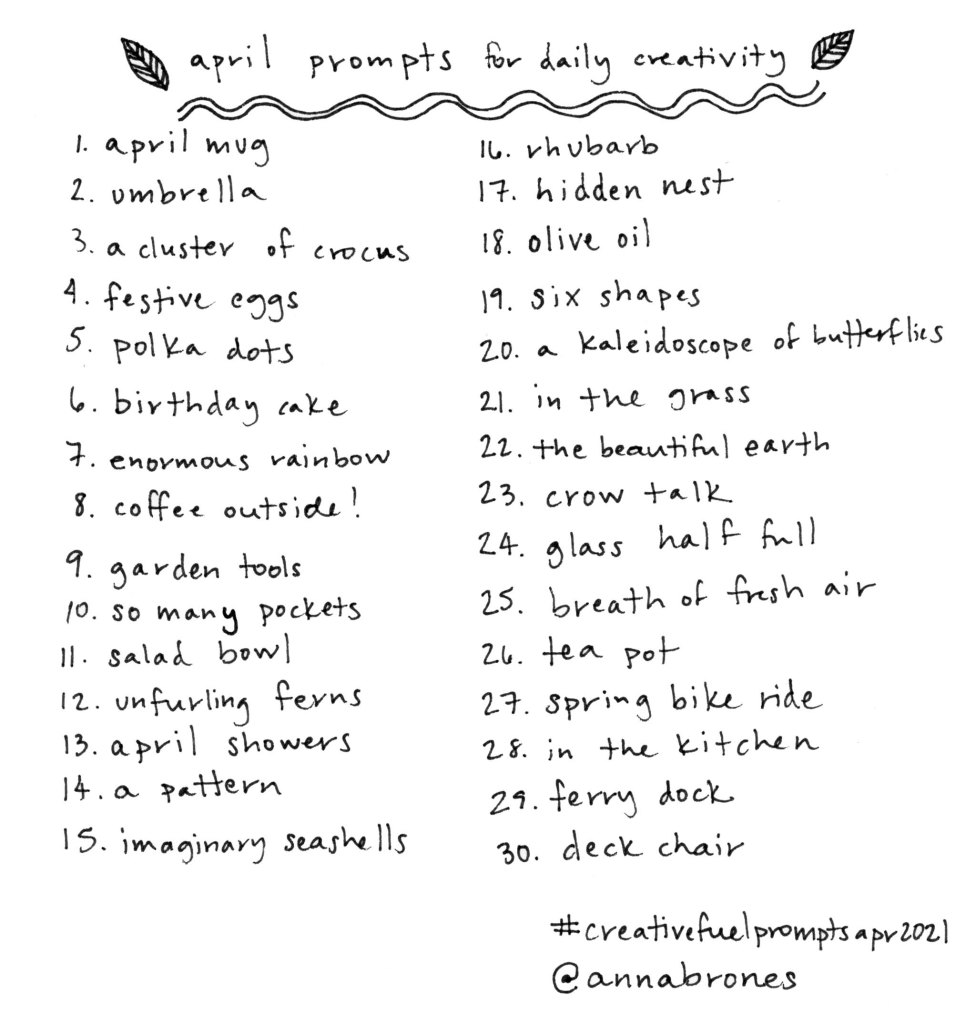 april prompts for daily creativity
1. april mug
2. umbrella
3. a cluster of crocus
4. festive eggs
5. polka dots
6. birthday cake
7. enormous rainbow
8. coffee outside!
9. garden tools
10. so many pockets
11. salad bowl
12. unfurling ferns
13. april showers
14. a pattern
15. imaginary seashells
16. rhubarb
17. hidden nest
18. olive oil
19. six shapes
20. a kaleidoscope of butterflies
21. in the grass
22. the beautiful earth
23. crow talk
24. glass half full
25. breath of fresh air
26. tea pot
27. spring bike ride
28. in the kitchen
29. ferry dock
30. deck chair
#creativefuelpromptsapr2021
@annabrones